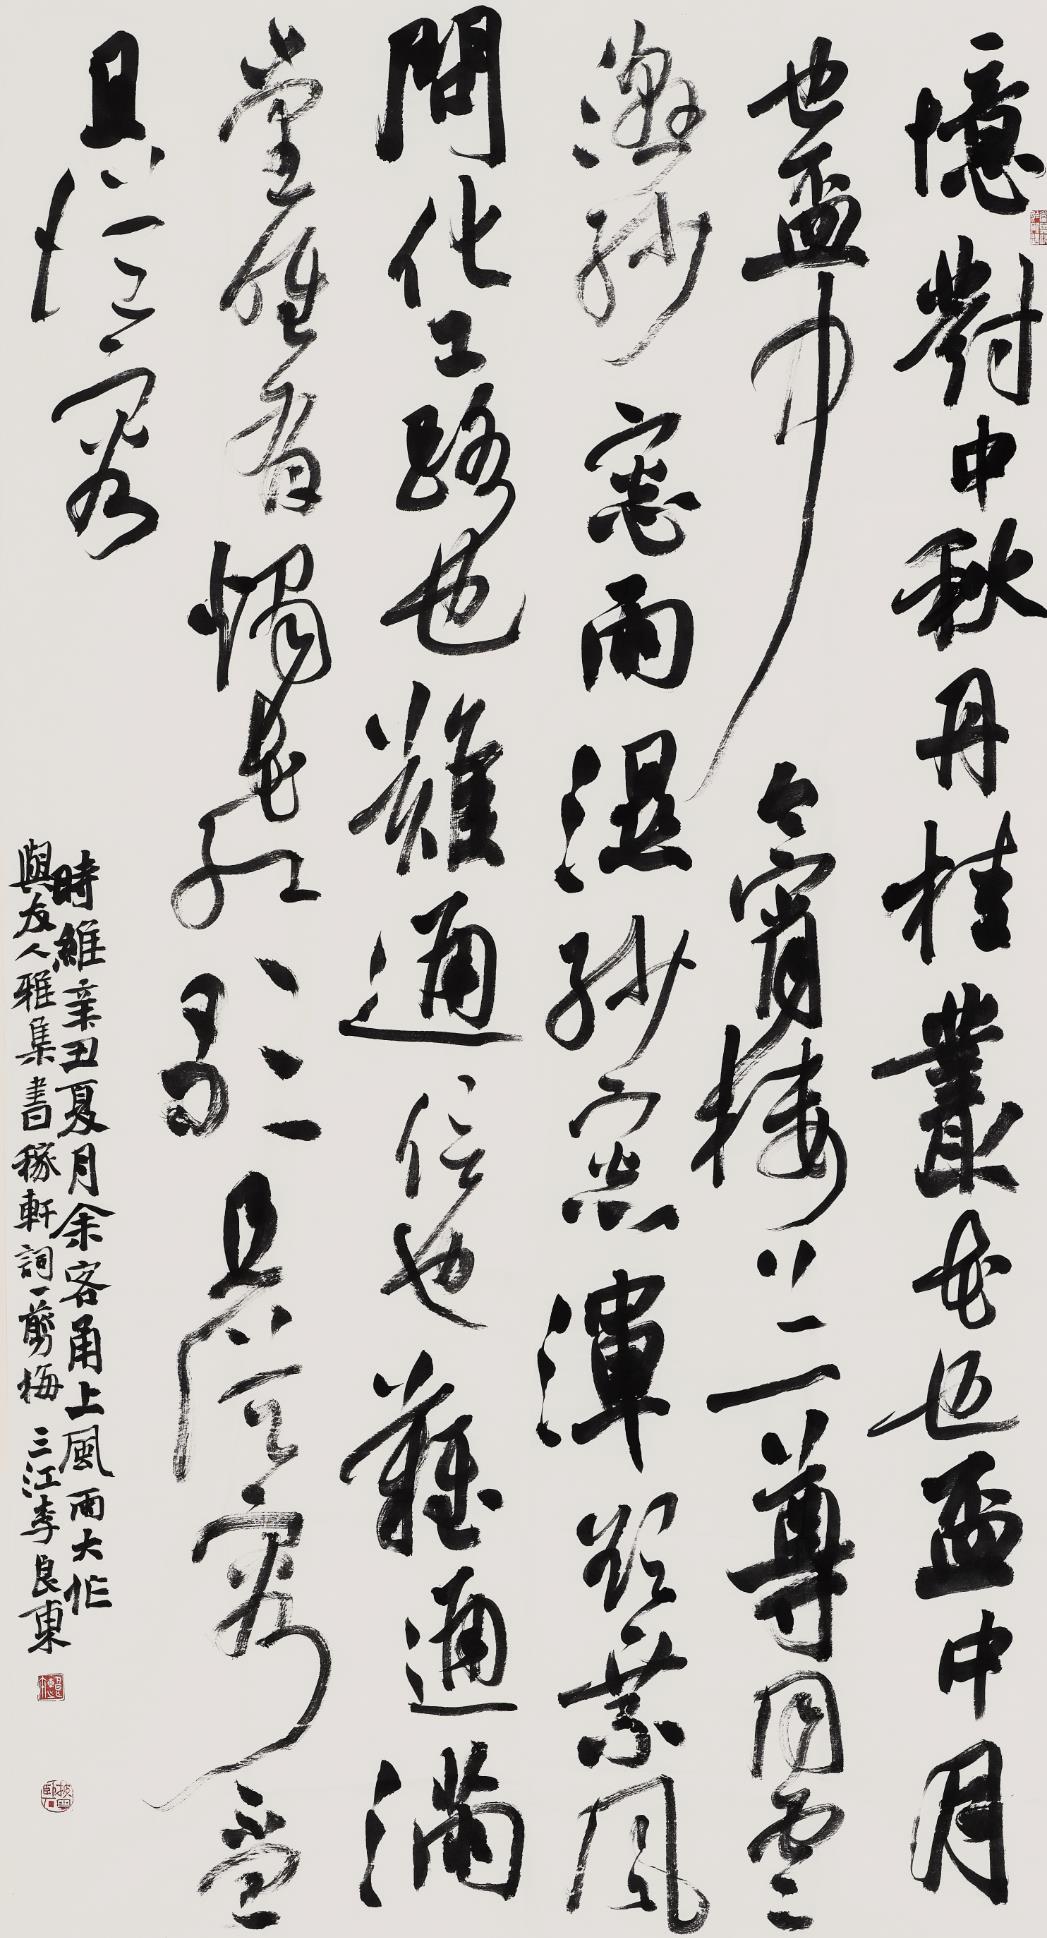 憶對中秋丹桂叢花在盃中月
在盃中今宵樓上一尊同雲
濕紗窓雨濕紗窓渾欲乘風
問化工路也難通信也難通滿
堂惟有燭花紅歌且從容盃
且從容
時維辛丑夏月余客甬上風雨大作
與友人雅集書稼軒詞一翦梅 三江李良東